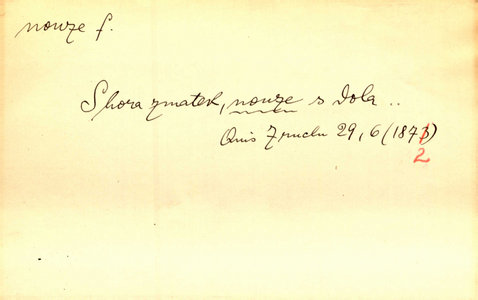 nouze f.
Shora zmatek, nouze s dola ..
Quis Z ruchu 29, 6 (1873)
2